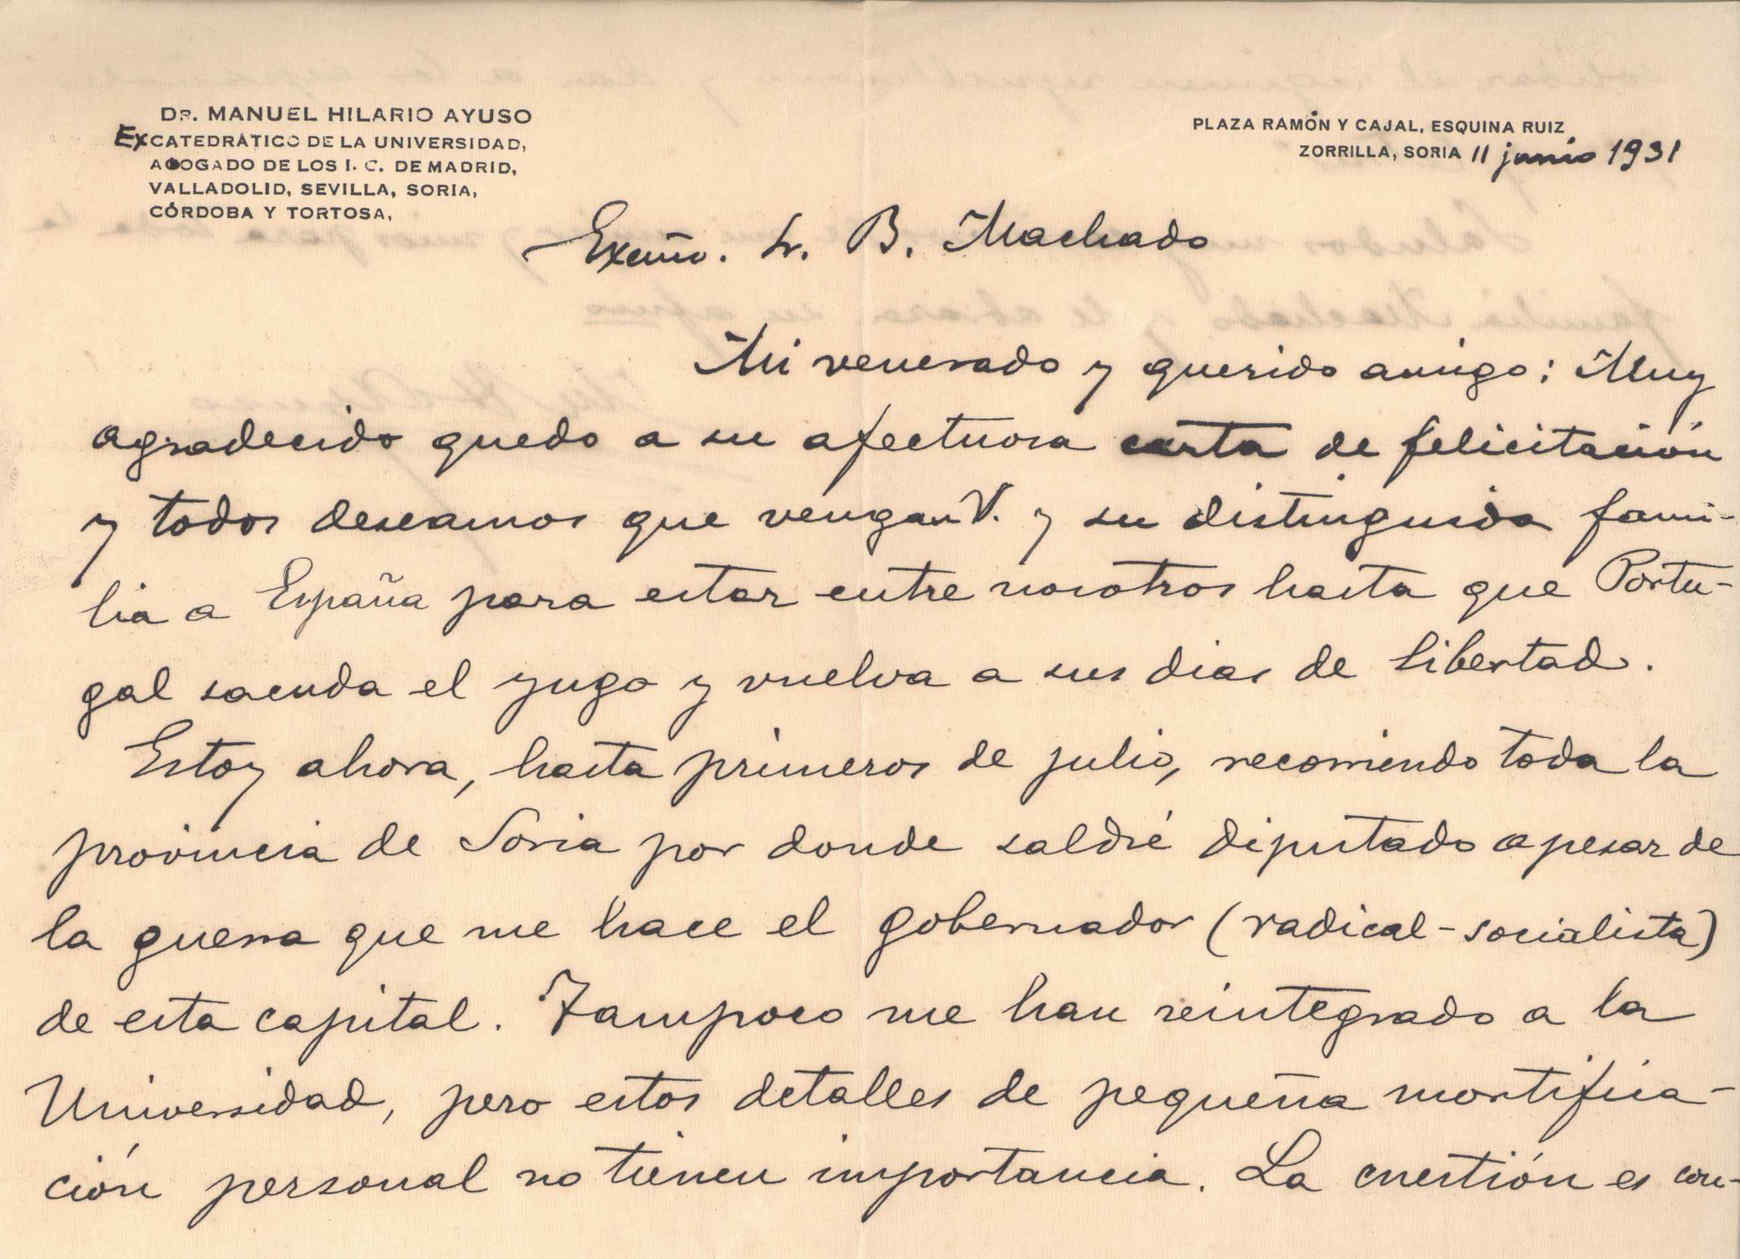 Dr. MANUEL HILARIO AYUSO
Ex CATEDRÁTICO DE LA UNIVERSIDAD,
ABOGADO DE LOS I. C. DE MADRID,
VALLADOLID, SEVILLA, SORIA,
CÓRDOBA Y TORTOSA,
PLAZA RAMÓN Y CAJAL, ESQUINA RUIZ
ZORRILLA, SORIA 11 junio 1931
Excmo. Sr. B. Machado
Mi venerado y querido amigo: Muy
agradecido quedo a su afectuosa carta de felicitación
y todos deseamos que vengan V. y su distinguida fami-
lia a España para estar entre nosotros hasta que Portu-
gal sacuda el yugo y vuelva a sus dias de libertad.
Estoy ahora, hasta primeros de julio, recorriendo toda la
provincia de Soria por donde saldré diputado apesar de
la guerra que me hace el gobernador (radical-socialista)
de esta capital. Tampoco me han reintegrado a la
Universidad, pero estos detalles de pequeña mortifica-
ción personal no tienen importancia. La cuestión es con-